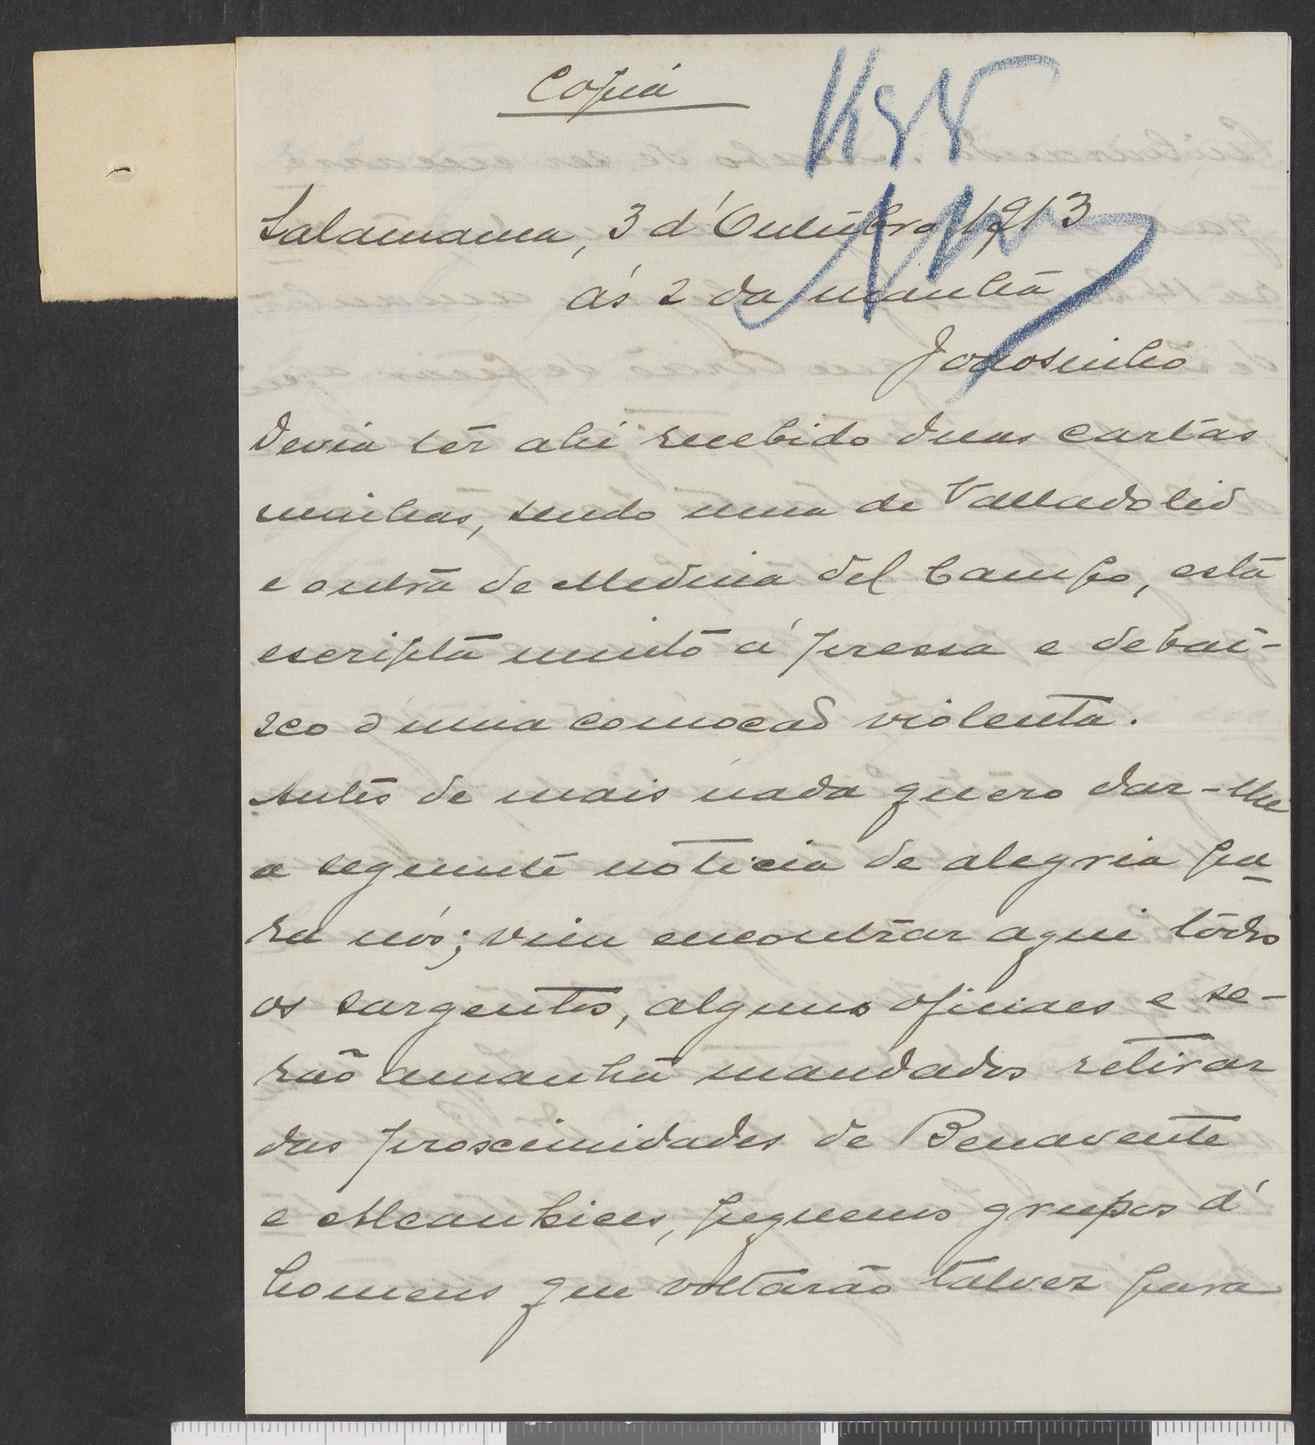 Copia
Salamanca, 3 d'Outubro 1913
ás 2 da manhã
Joãosinho
Devia têr ahi recebido duas cartas
minhas, sendo uma de Valladolid
e outra de Medina del Campo, esta
escripta muito á pressa e debai-
xo d'uma comoção violenta.
Antes de mais nada quero dar-lhe
a seguinte noticia de alegria pa-
ra nós; vim encontrar aqui todos
os sargentos, alguns oficiaes e se-
rão amanhã mandados retirar
das proximidades de Benavente
e Alcanhices, pequenos grupos d'
homens que voltarão talvez para